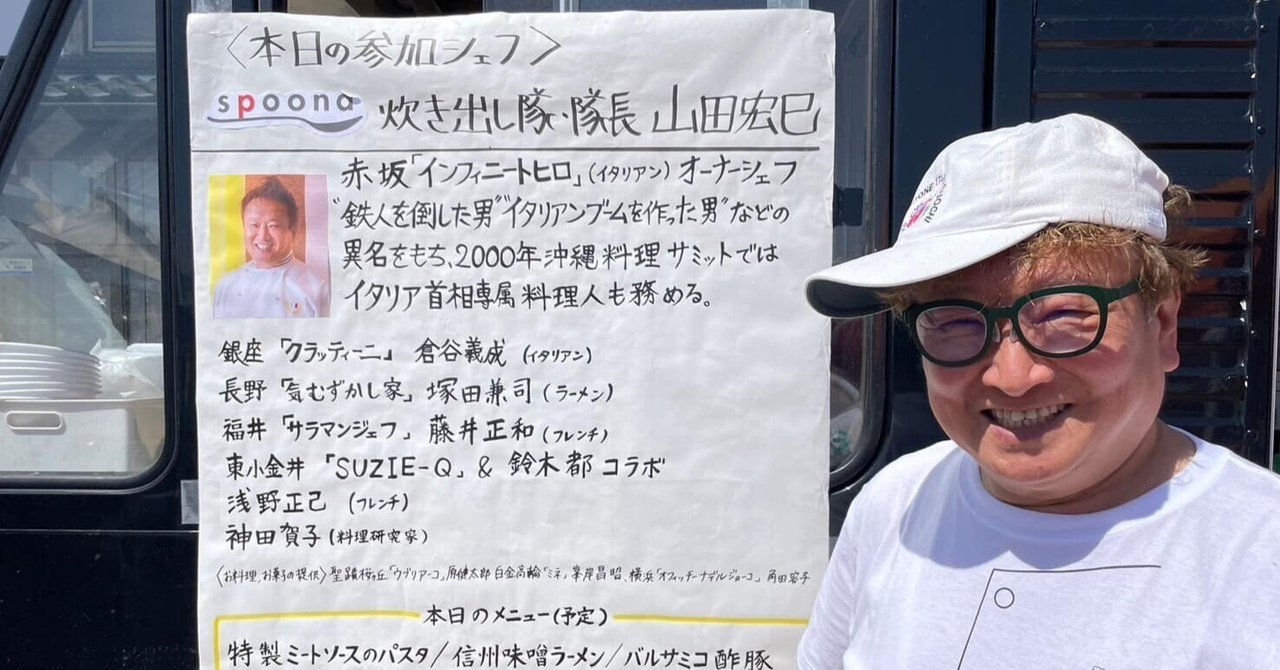 〈本日の参加シェフ〉
spoona 炊き出し隊・隊長 山田宏巳
赤坂「インフィニートヒロ」(イタリアン) オーナーシェフ
“鉄人を倒した男”“イタリアンブームを作った男”などの
異名をもち、2000年沖縄料理サミットでは
イタリア首相専属料理人も務める。
銀座「クラッティーニ」 倉谷義成 (イタリアン)
長野「気むずかし家」塚田兼司 (ラーメン)
福井「サラマンジェフ」 藤井正和 (フレンチ)
東小金井 「SUZIE-Q」 & 鈴木都 コラボ
浅野正己 (フレンチ)
神田賀子 (料理研究家)
〈お料理、お菓子の提供〉聖蹟桜ヶ丘「ウブリアーコ」原健太郎 白金高輪「ミネ」峯岸昌昭、横浜「オフィッチーナデルジョーコ」 角田容子
本日のメニュー(予定)
特製ミートソースのパスタ/信州味噌ラーメン/バルサミコ酢豚